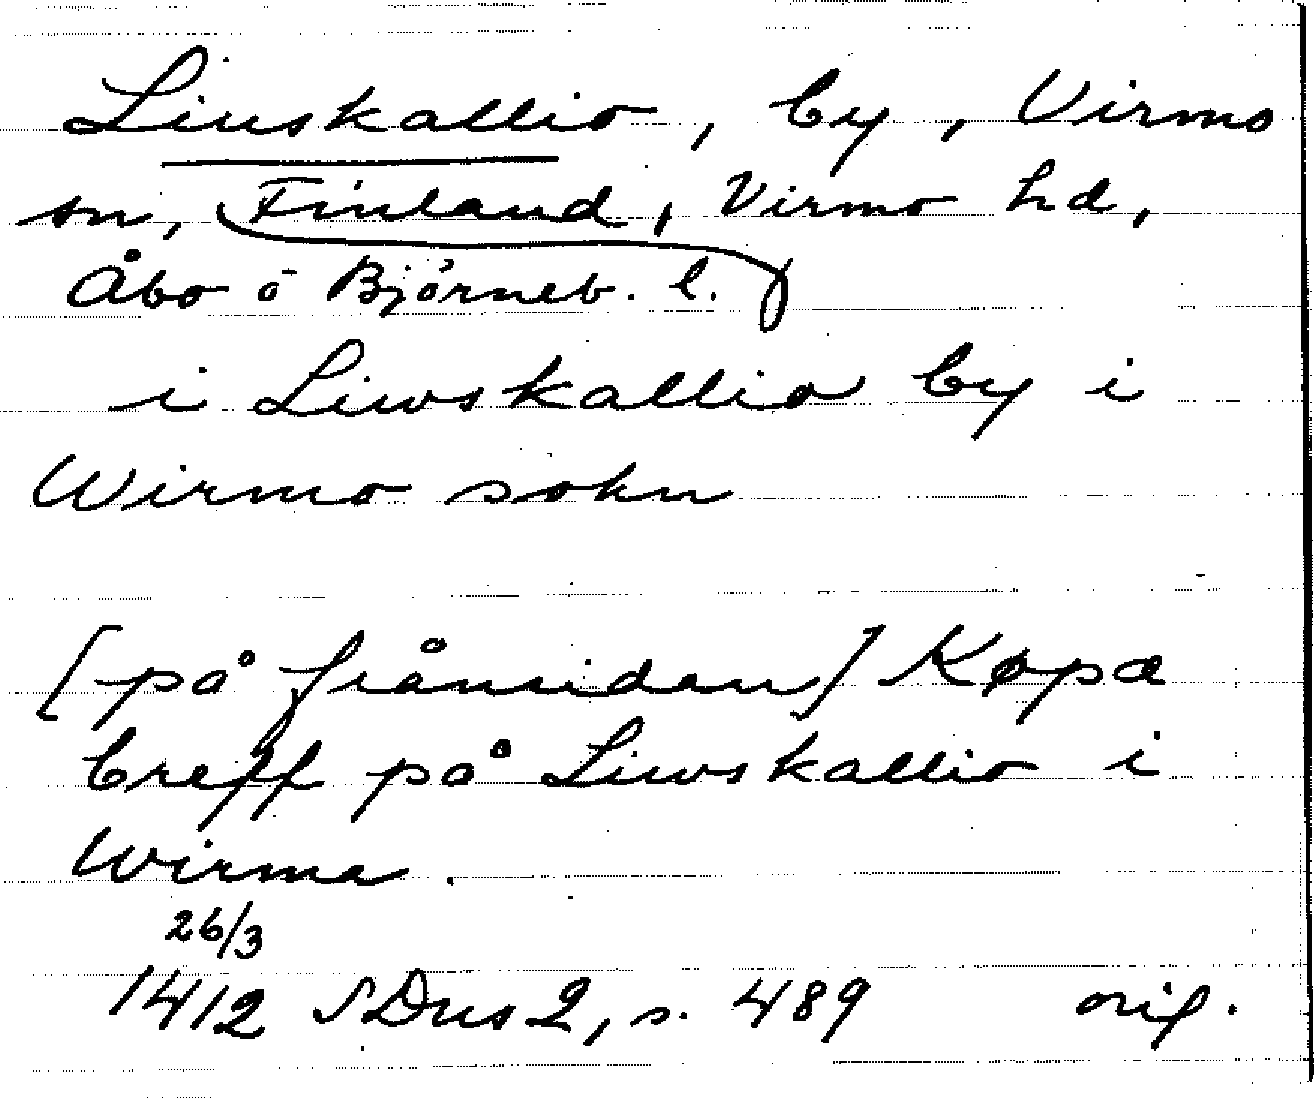 Liuskallio, by, Virmo
sn, Finland, Virmo hd,
Åbo o Björneb. l.
i Liwskallio by i
Wirmo sokn
[på frånsidan] Køpæ
breff på Liwskallio i
Wirma.
26/3
1412 SDns 2, s. 489 orig.